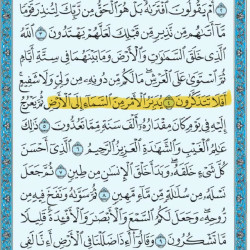 أَمْ يَقُولُونَ ٱفْتَرَىٰهُ بَلْ هُوَ ٱلْحَقُّ مِن رَّبِّكَ لِتُنذِرَ قَوْمًا
مَّآ أَتَىٰهُم مِّن نَّذِيرٍ مِّن قَبْلِكَ لَعَلَّهُمْ يَهْتَدُونَ ٣ ٱللَّهُ
ٱلَّذِى خَلَقَ ٱلسَّمَٰوَٰتِ وَٱلْأَرْضَ وَمَا بَيْنَهُمَا فِى سِتَّةِ أَيَّامٍ
ثُمَّ ٱسْتَوَىٰ عَلَى ٱلْعَرْشِ مَا لَكُم مِّن دُونِهِۦ مِن وَلِىٍّ وَلَا شَفِيعٍ
أَفَلَا تَتَذَكَّرُونَ ٤ يُدَبِّرُ ٱلْأَمْرَ مِنَ ٱلسَّمَآءِ إِلَى ٱلْأَرْضِ ثُمَّ يَعْرُجُ
إِلَيْهِ فِى يَوْمٍ كَانَ مِقْدَارُهُۥٓ أَلْفَ سَنَةٍ مِّمَّا تَعُدُّونَ ٥ ذَٰلِكَ
عَٰلِمُ ٱلْغَيْبِ وَٱلشَّهَٰدَةِ ٱلْعَزِيزُ ٱلرَّحِيمُ ٦ ٱلَّذِىٓ أَحْسَنَ
كُلَّ شَىْءٍ خَلَقَهُۥ وَبَدَأَ خَلْقَ ٱلْإِنسَٰنِ مِن طِينٍ ٧ ثُمَّ جَعَلَ
نَسْلَهُۥ مِن سُلَٰلَةٍ مِّن مَّآءٍ مَّهِينٍ ٨ ثُمَّ سَوَّىٰهُ وَنَفَخَ فِيهِ مِن
رُّوحِهِۦ وَجَعَلَ لَكُمُ ٱلسَّمْعَ وَٱلْأَبْصَٰرَ وَٱلْأَفْـِٔدَةَ قَلِيلًا
مَّا تَشْكُرُونَ ٩ وَقَالُوٓا۟ أَءِذَا ضَلَلْنَا فِى ٱلْأَرْضِ أَءِنَّا لَفِى